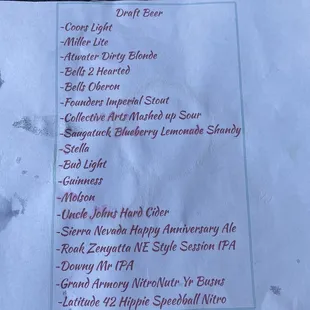 Draft Beer
-Coors Light
-Miller Lite
-Atwater Dirty Blonde
-Bells 2 Hearted
-Bells Oberon
-Founders Imperial Stout
-Collective Arts Mashed up Sour
-Saugatuck Blueberry Lemonade Shandy
-Stella
-Bud Light
-Guinness
-Molson
-Uncle Johns Hard Cider
-Sierra Nevada Happy Anniversary Ale
-Roak Zenyatta NE Style Session IPA
-Downy Mr IPA
-Grand Armory NitroNutr Yr Busns
-Latitude 42 Hippie Speedball Nitro